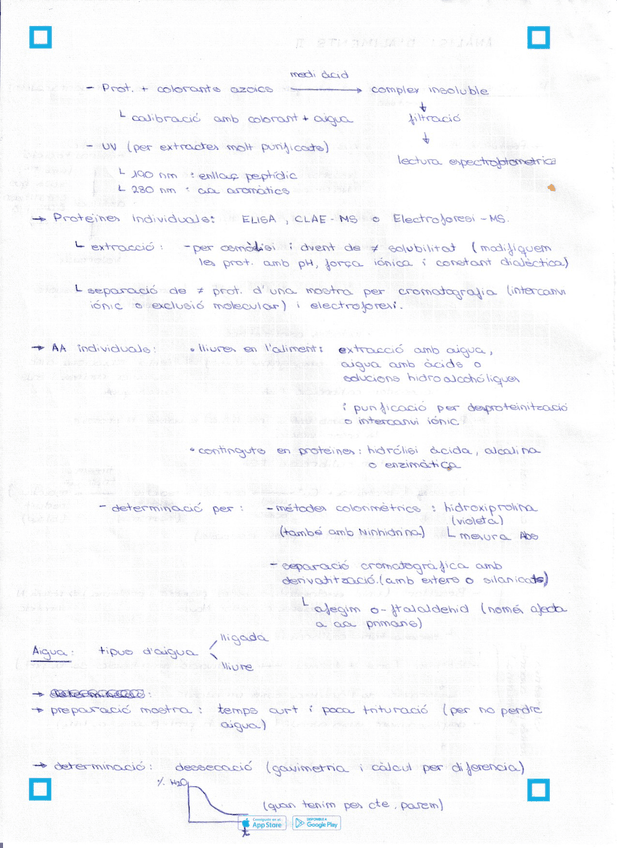 medi àcid
- Prot. + colorants azoics → complex insoluble
↓
└ calibració amb colorant + aigua filtració
↓
- UV (per extractes molt purificats)
lectura espectrofotomètrica
└ 190 nm : enllaç peptídic
└ 280 nm : aa aromàtics
→ Proteïnes individuals: ELISA, CLAE-MS o Electroforesi-MS.
└ extracció: - per osmòlisi i dvent de ≠ solubilitat (modifiquem
les prot. amb pH, força iònica i constant dialèctica)
└ separació de ≠ prot. d'una mostra per cromatografia (intercanvi
iònic o exclusió molecular) i electroforesi.
→ AA individuals: • lliures en l'aliment: extracció amb aigua,
aigua amb àcids o
solucions hidroalcohòliques
i purificació per desproteinització
o intercanvi iònic
• continguts en proteïnes: hidròlisi àcida, alcalina
o enzimàtica
- determinació per: - mètodes colorimètrics: hidroxiprolina
(violeta)
(també amb Ninhidrina) └ mesura Abs
- separació cromatogràfica amb
derivatització (amb esters o silanitzats)
└ afegim o-ftalaldehid (només afecta
a aa primaris)
lligada
Aigua: tipus d'aigua
lliure
→ preparació mostra: temps curt i poca trituració (per no perdre
aigua)
→ determinació: dessecació (gravimetria i càlcul per diferencia)
% H2O
(quan tenim pes cte. parem)
t
Consíguelo en el
App Store
DISPONIBLE EN
Google Play